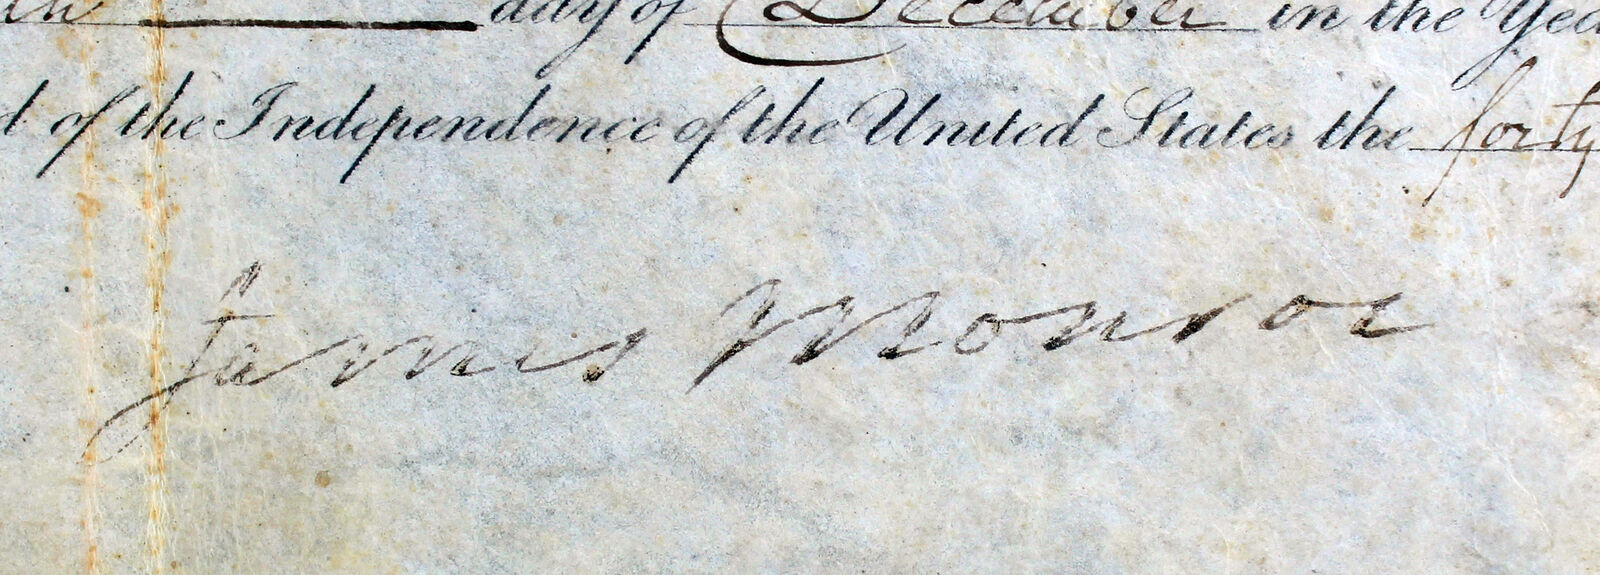 th day of December in the Yea
d of the Independence of the United States the forty
James Monroe